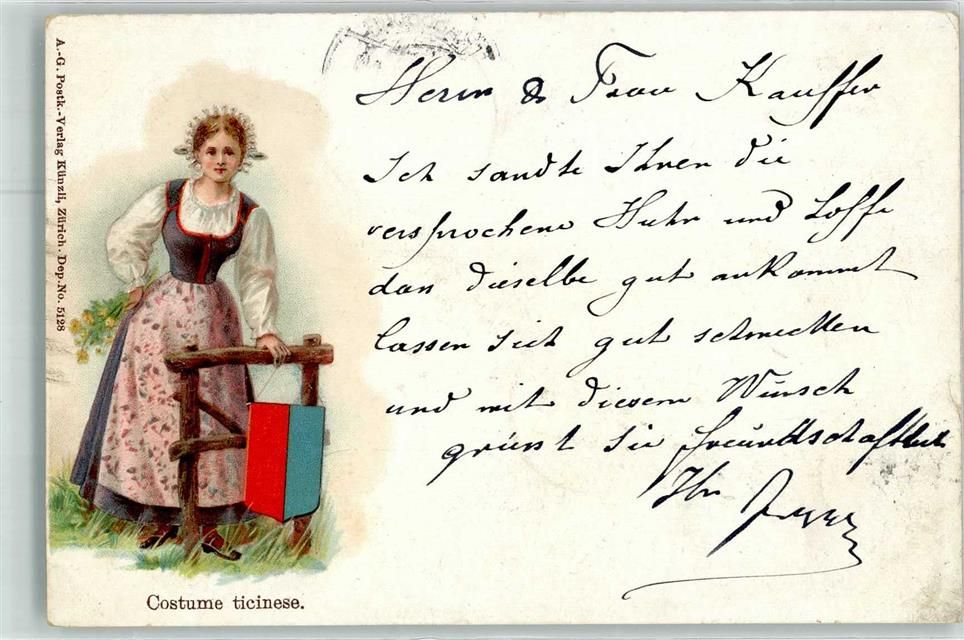 A.-G. Postk.-Verlag Künzli, Zürich. Dep. No. 5128
Herrn & Frau Kauffer
Ich sandte Ihnen die
versprochene Huhn und hoffe
das dieselbe gut ankommt
lassen sich gut schmecken
und mit diesem Wunsch
grüsst sie freundschaftlich
Ihr
Costume ticinese.